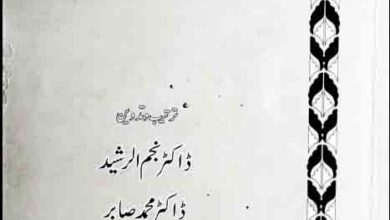 ترتیب و تدوین
ڈاکٹر نجم الرشید
ڈاکٹر محمد صابر